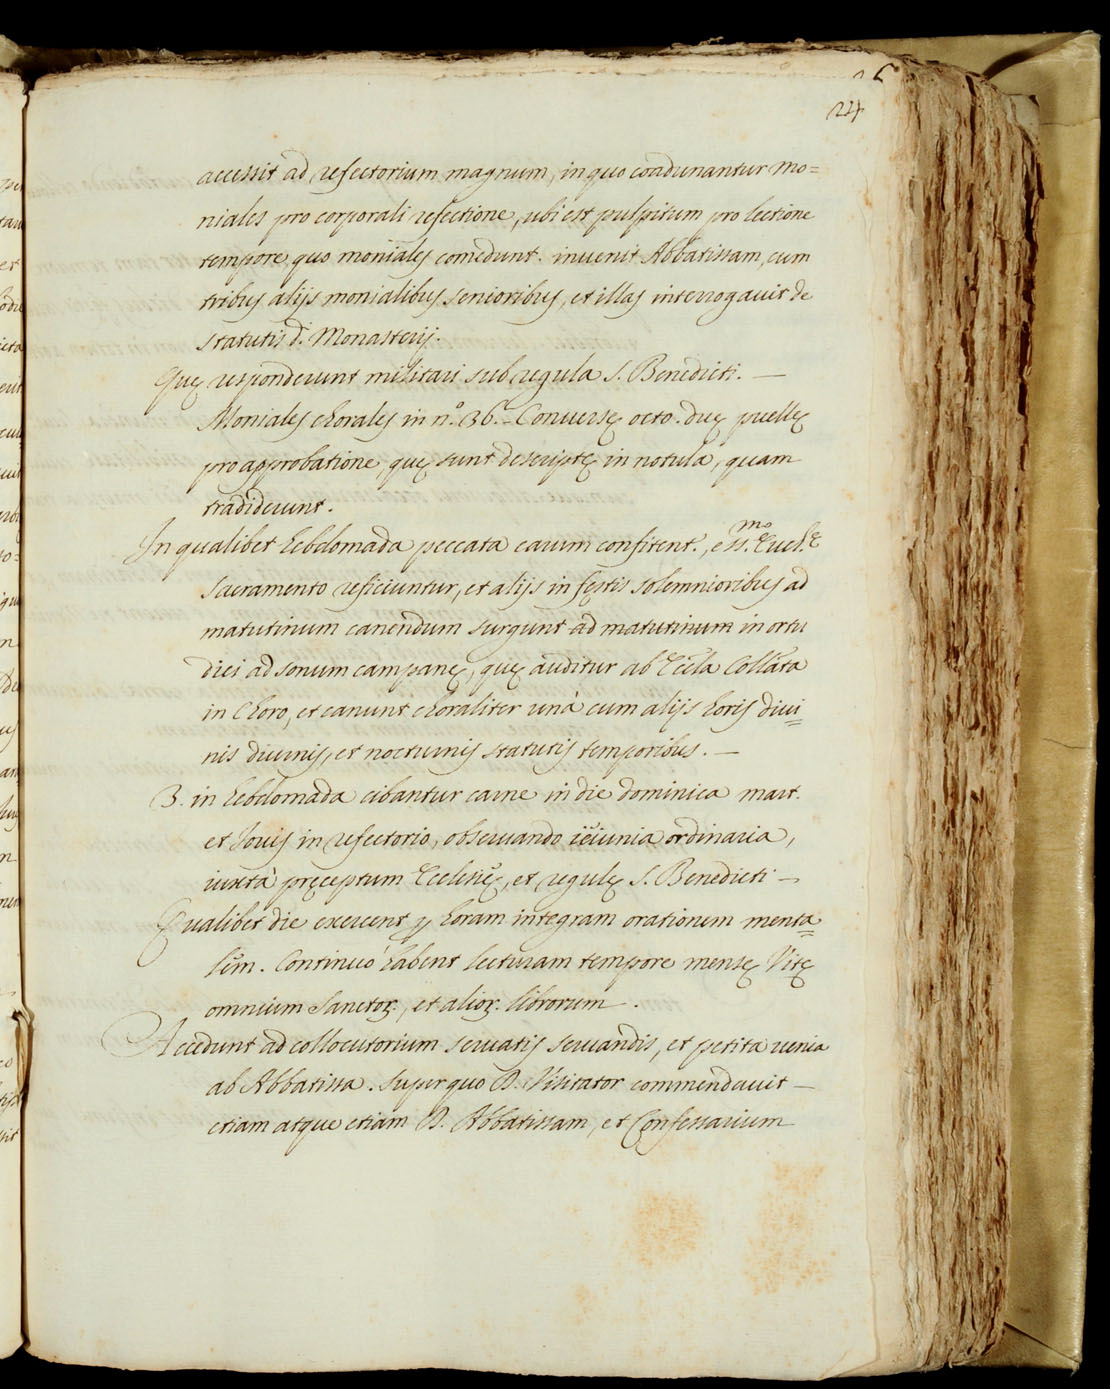 24
accessit ad refectorium magnum, in quo coadunantur mo=
niales pro corporali refectione, ubi est pulpitum pro lectione
tempore, quo moniales comedunt. inuenit Abbatissam, cum
tribus alijs monialibus senioribus, et illas interrogauit de
statutis d. Monasterij.
Quę responderunt militari sub regula S. Benedicti. —
Moniales chorales in n.º 36. Conuersę octo. duę puellę
pro approbatione, quę sunt descriptę in notula, quam
tradiderunt.
In qualibet hebdomada peccata earum confitent., e ss.mo Euch.ę
sacramento reficiuntur, et alijs in festis solemnioribus ad
matutinum canendum surgunt ad matutinum in ortu
diei ad sonum campanę, quę auditur ab Eccla Collata
in Choro, et canunt choraliter unà cum alijs horis diui=
nis diurnis, et nocturnis statutis temporibus. —
3. in hebdomada cibantur carne in die dominica mart.
et Jouis in refectorio, obseruando ieiunia ordinaria,
iuxta pręceptum Ecclesię, et regulę S. Benedicti —
Qualibet die exercent p horam integram orationem menta=
lem. Continuò habent lecturam tempore mensę Vitę
omnium Sanctor., et alior. librorum.
Accedunt ad collocutorium seruatis seruandis, et petita uenia
ab Abbatissa. super quo D. Visitator commendauit —
etiam atque etiam D. Abbatissam, et Confessarium